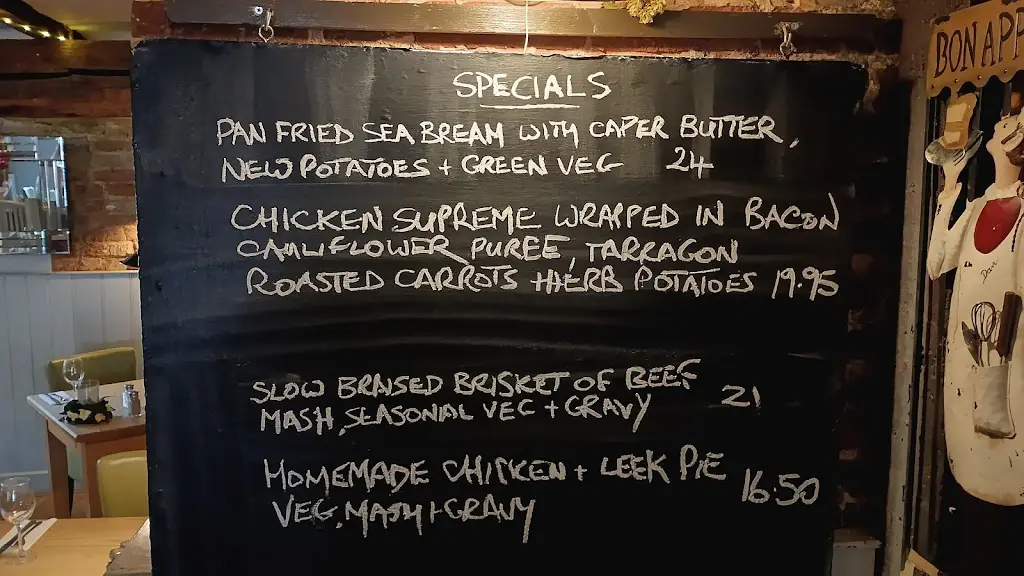 SPECIALS
PAN FRIED SEA BREAM WITH CAPER BUTTER,
NEW POTATOES + GREEN VEG 24
CHICKEN SUPREME WRAPPED IN BACON
CAULIFLOWER PUREE, TARRAGON
ROASTED CARROTS + HERB POTATOES 19.95
SLOW BRAISED BRISKET OF BEEF
MASH, SEASONAL VEG + GRAVY 21
HOMEMADE CHICKEN + LEEK PIE
VEG, MASH + GRAVY 16.50
BON APP